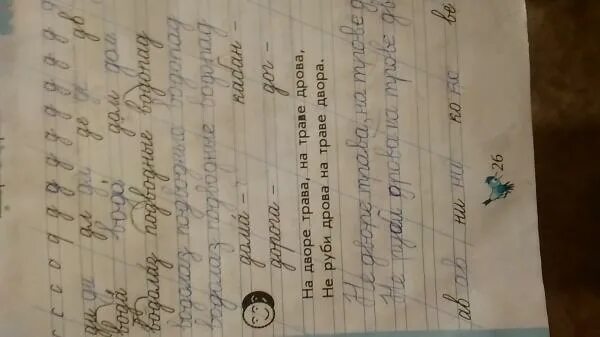 с с с о д д д д д д д д д
ди ди дл де де дв
вода́ вода́ дом дом
водолаз подводные водопад
водолаз подводные водопад
водолаз подводные водопад
дома́ – кабан –
дорога – дог –
На дворе трава, на траве дрова,
Не руби дрова на траве двора.
На дворе трава, на трове д
Не руби дрова на трове дв
ав ав ни ни ко ко ве
26